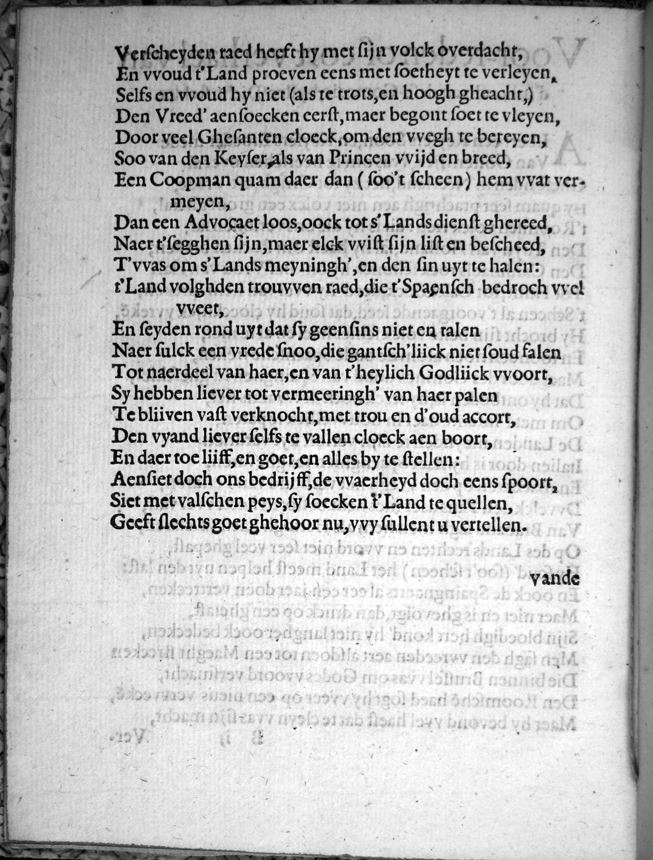 Verſcheyden raed heeft hy met ſijn volck overdacht,
En vvoud t'Land proeven eens met ſoetheyt te verleyen,
Selfs en vvoud hy niet (als te trots, en hoogh gheacht,)
Den Vreed' aenſoecken eerſt, maer begont ſoet te vleyen,
Door veel Gheſanten cloeck, om den vvegh te bereyen,
Soo van den Keyſer, als van Princen vvijd en breed,
Een Coopman quam daer dan (ſoo't ſcheen) hem vvat ver-
meyen,
Dan een Advocaet loos, oock tot s'Lands dienſt ghereed,
Naer t'ſegghen ſijn, maer elck vviſt ſijn liſt en beſcheed,
T'vvas om s'Lands meyningh', en den ſin uyt te halen:
t'Land volghden trouvven raed, die t'Spaenſch bedroch vvel
vveet,
En ſeyden rond uyt dat ſy geenſins niet en ralen
Naer ſulck een vrede ſnoo, die gantſch'liick niet ſoud falen
Tot naerdeel van haer, en van t'heylich Godliick vvoort,
Sy hebben liever tot vermeeringh' van haer palen
Te bliiven vaſt verknocht, met trou en d'oud accort,
Den vyand liever ſelfs te vallen cloeck aen boort,
En daer toe liiff, en goet, en alles by te ſtellen:
Aenſiet doch ons bedrijff, de vvaerheyd doch eens ſpoort,
Siet met valſchen peys, ſy ſoecken t'Land te quellen,
Geeft ſlechts goet ghehoor nu, vvy ſullent u vertellen.
vande